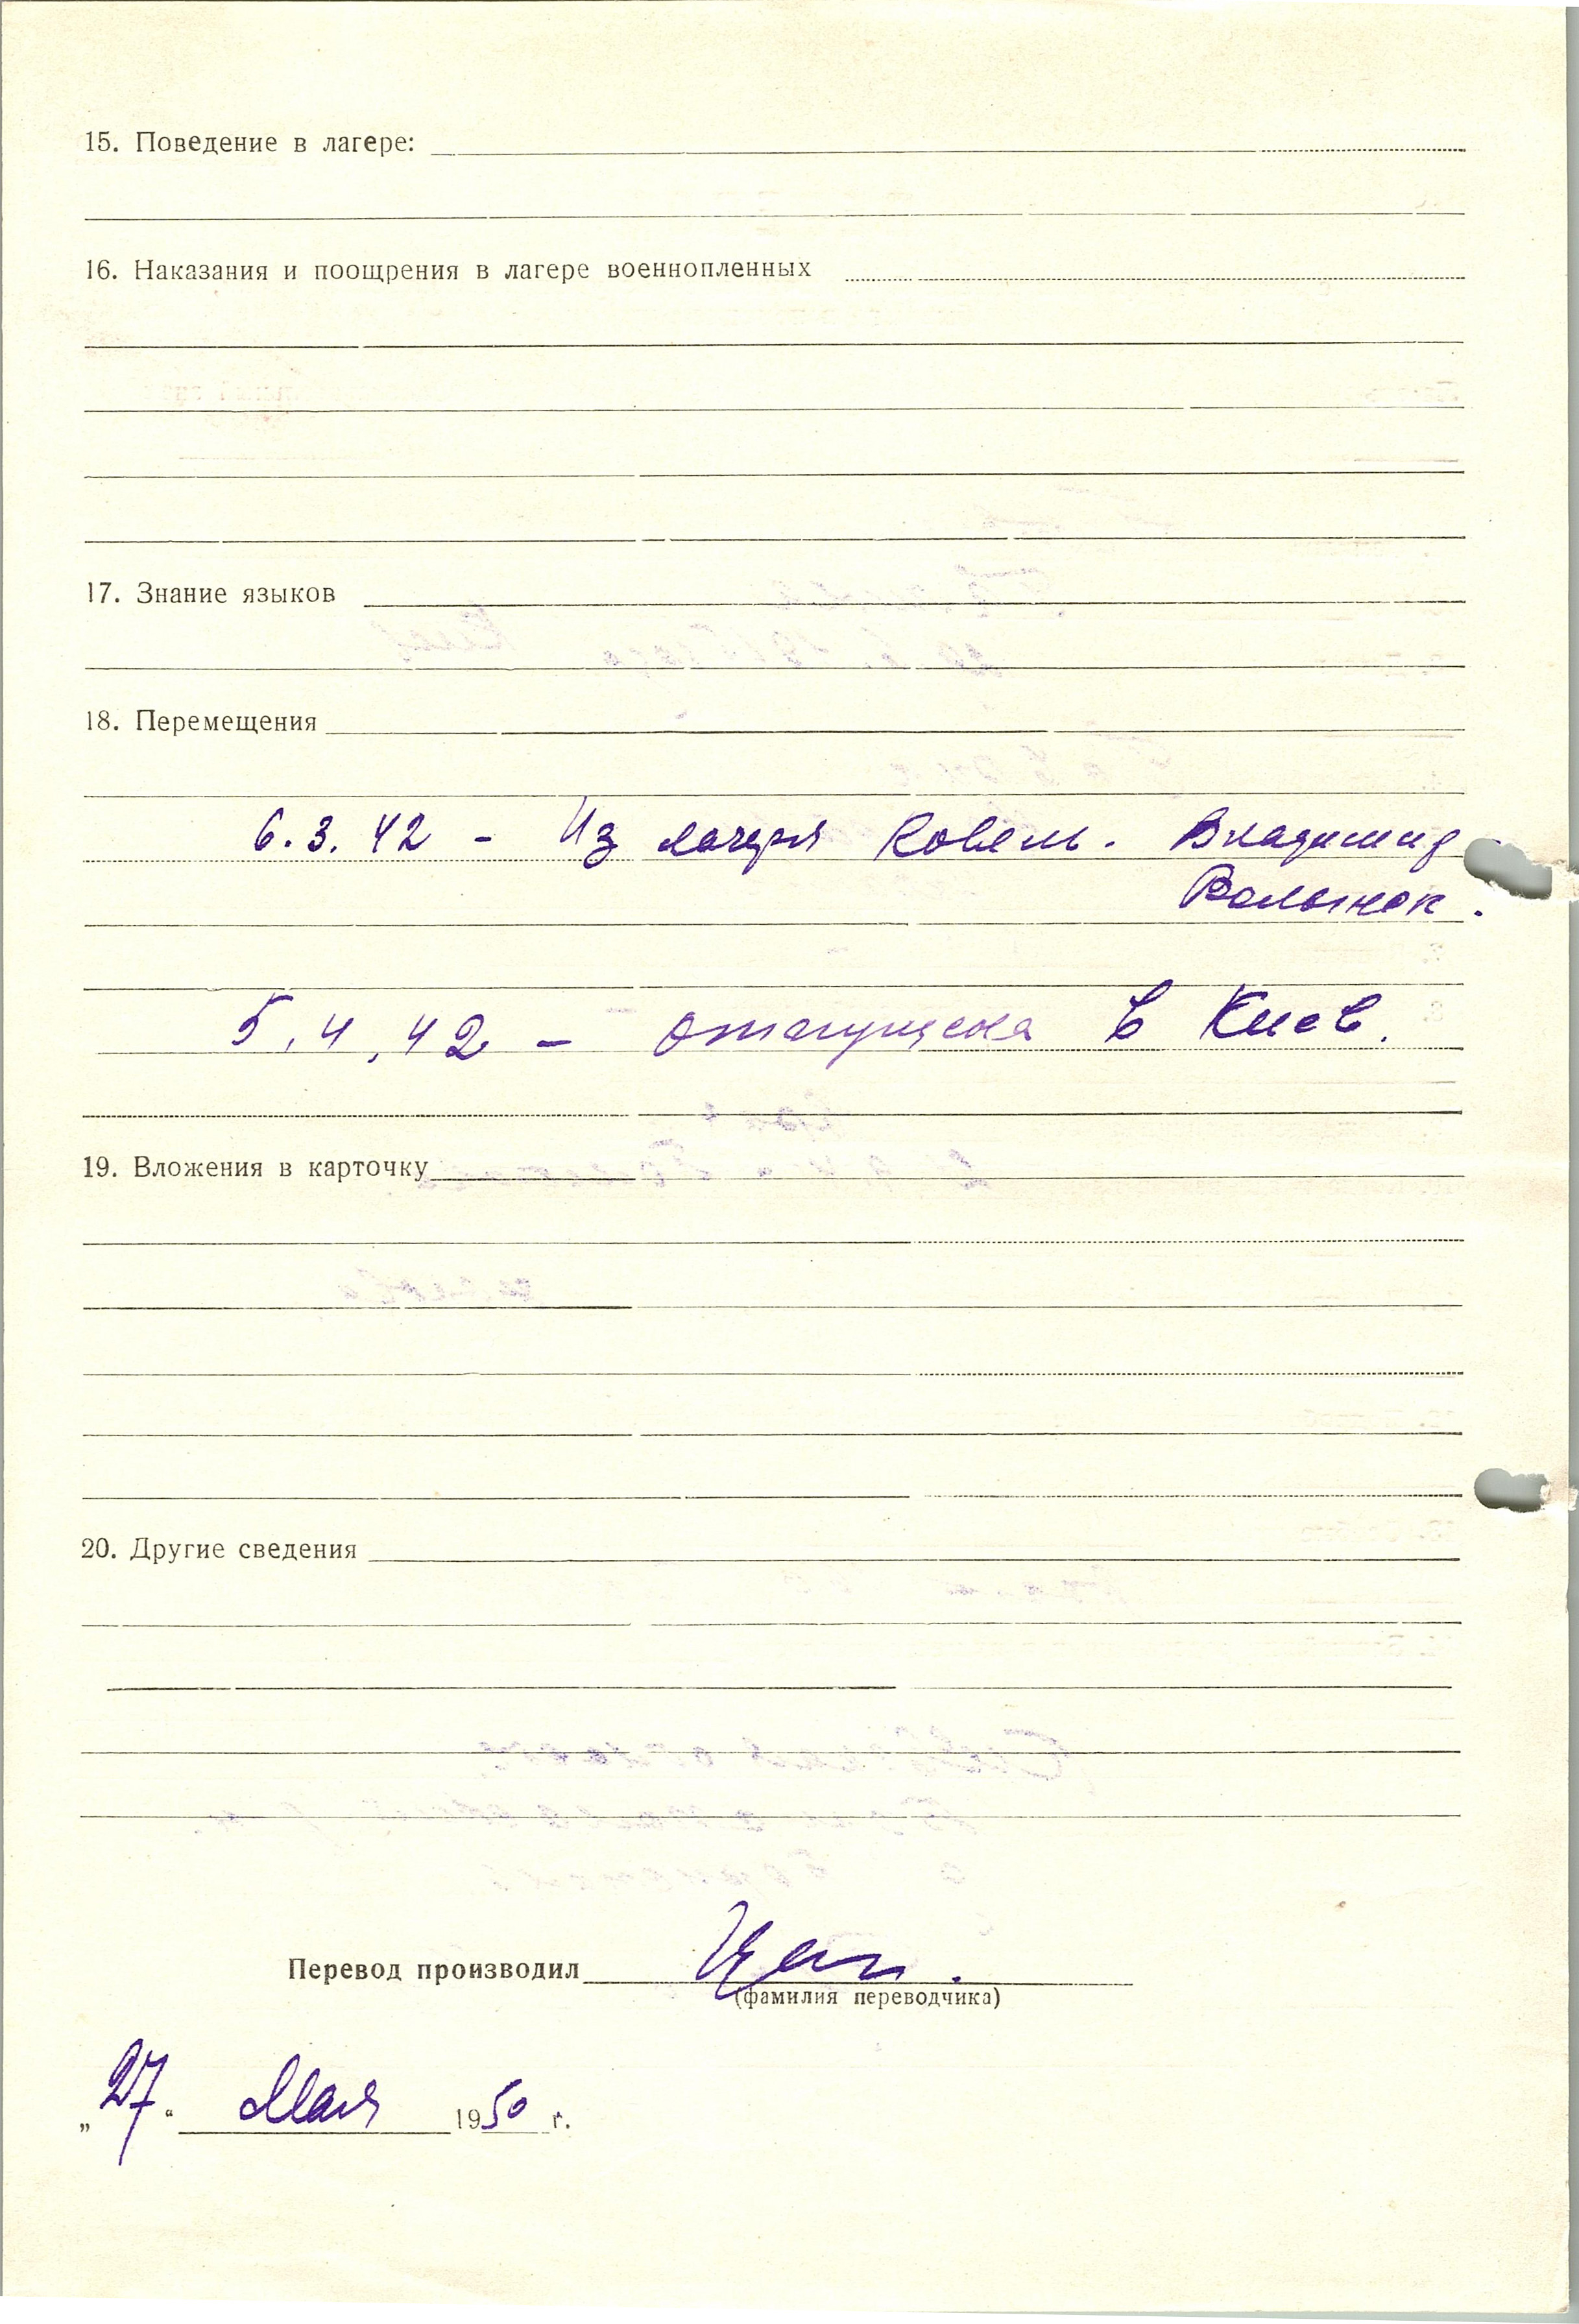 15. Поведение в лагере:
16. Наказания и поощрения в лагере военнопленных
17. Знание языков
18. Перемещения
6.3.42 - Из лагеря Ковель. Владимир
Волынск.
5.4.42 - отпущена в Киев.
19. Вложения в карточку
20. Другие сведения
Перевод производил
(фамилия переводчика)
„27“ Мая 1950 г.